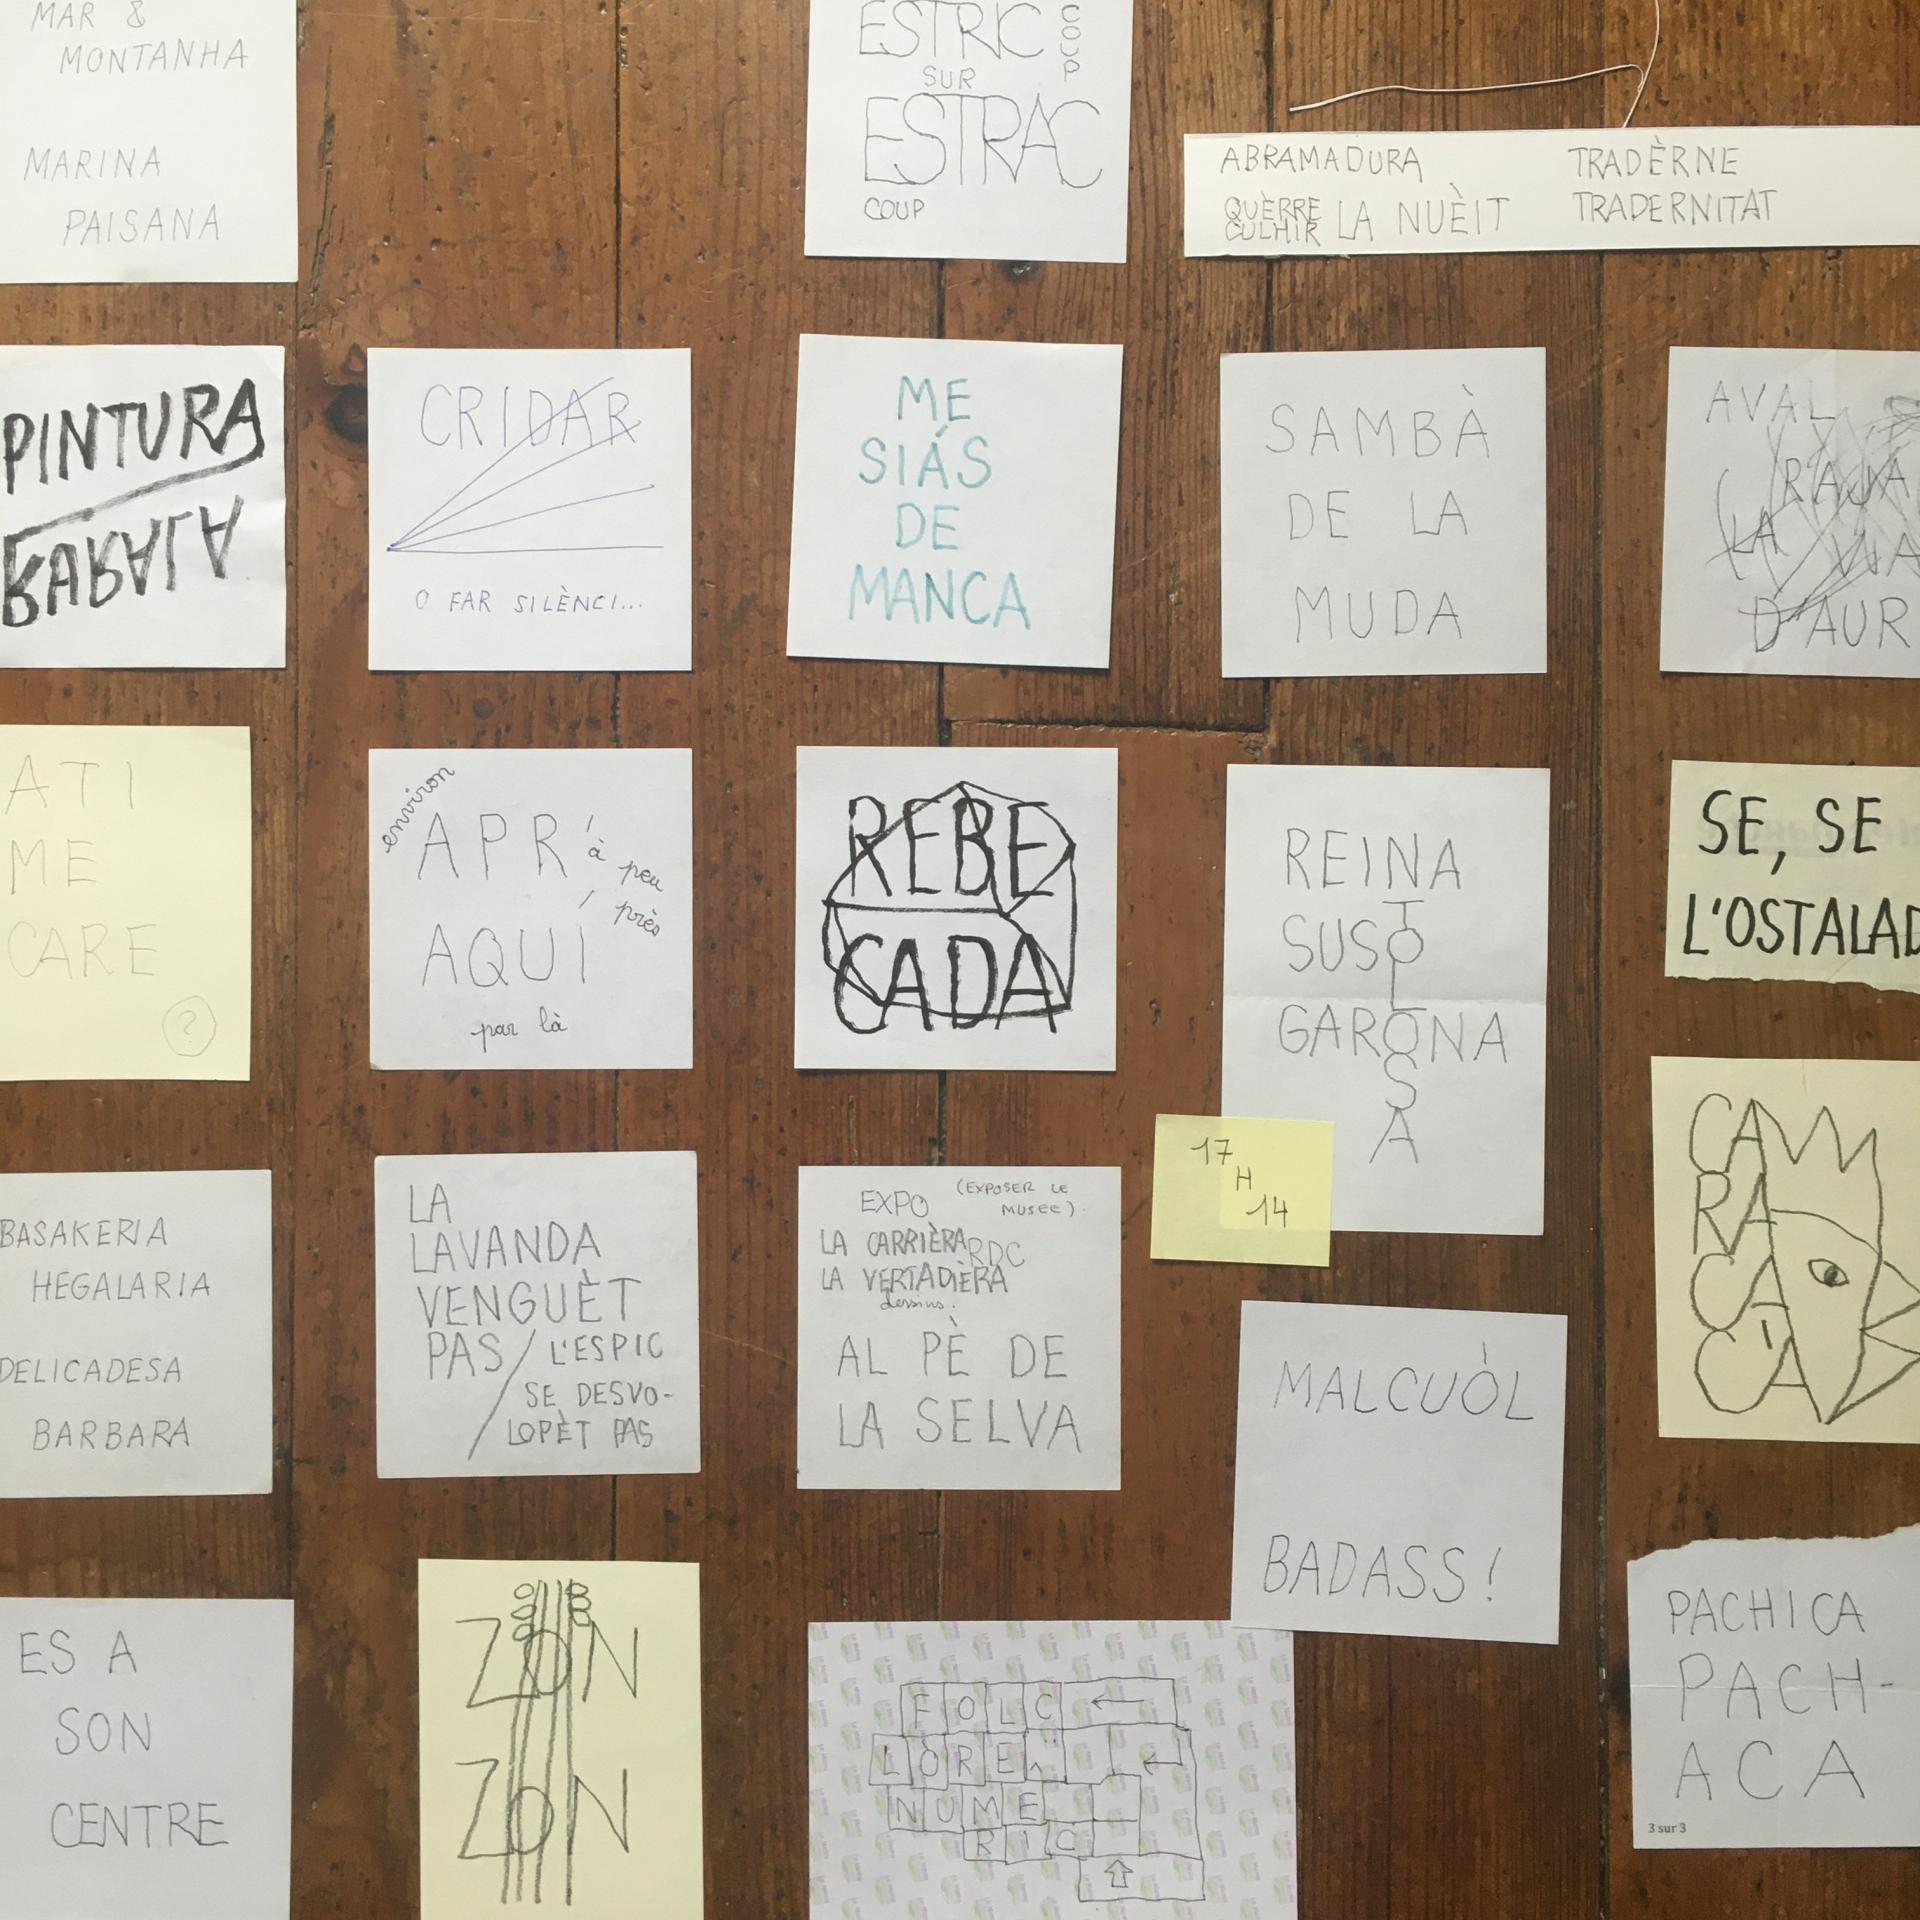 MAR &
MONTANHA
MARINA
PAISANA
ESTRIC
COUP
SUR
ESTRAC
COUP
ABRAMADURA
QUÈRRE
CULHIR
LA NUÈIT
TRADÈRNE
TRADERNITAT
PINTURA
RURALA
CRIDAR
O FAR SILÈNCI...
ME
SIÁS
DE
MANCA
SAMBÀ
DE LA
MUDA
AVAL
RAJA
LA
D'AUR
ATI
ME
CARE
?
environ
APR'
à peu
près
AQUÍ
par là
REBE
CADA
REINA
SUS
GARONA
TOLOSA
SE, SE
L'OSTALAD
17
H
14
BASAKERIA
HEGALARIA
DELICADESA
BARBARA
LA
LAVANDA
VENGUÈT
PAS / L'ESPIC
SE DESVO-
LOPÈT PAS
EXPO
(EXPOSER LE
MUSEE).
LA CARRIÈRA
RDC
LA VERTADIÈRA
dessins.
AL PÈ DE
LA SELVA
MALCUÒL
BADASS!
CA
RA
CA
CA
ES A
SON
CENTRE
ZON
ZON
FOLC ←
LÒRE
NUME
RIC
PACHICA
PACH-
ACA
3 sur 3